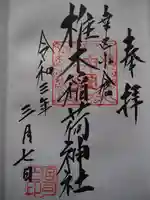 奉拝
椎木稲荷神社
令和三年
三月七日